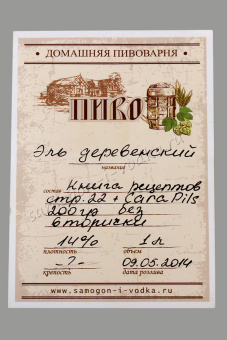 • ДОМАШНЯЯ ПИВОВАРНЯ •
ПИВО
Эль деревенский
название
состав Книга рецептов
стр. 22 + Cara Pils
200гр без
вторички
14% 1л
плотность объем
-?- 09.05.2014
крепость дата розлива
www.samogon-i-vodka.ru